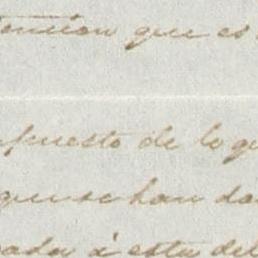 tencion que es
puesto de lo qu
que se han da
cada á esta del